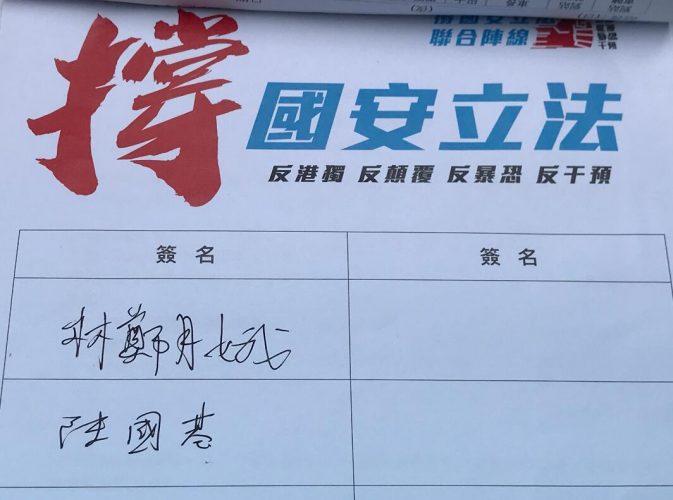 國安立法
聯合陣線
撐 國安立法
反港獨 反顛覆 反暴恐 反干預
簽名 簽名
林鄭月娥
陳國基